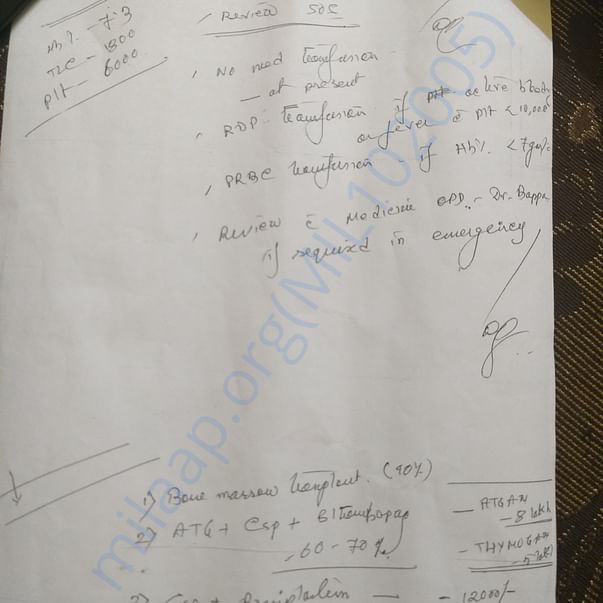 Review SOS
Hb% 7.3
TLC - 1800
Plt - 6000
, No need transfusion
— at present
, RDP transfusion if active bleed
or fever c̄ Plt <10,000
, PRBC transfusion - if Hb% <7gm%
, Review c̄ Medicine OPD - Dr. Bappa
if required in emergency
1) Bone marrow transplant. (90%)
2) ATG + Csp + Eltrombopag
- 60-70%
— ATGAM
- 8 lakh
— THYMOGAM
- 5 lakh
3) Csp +
— - 12000/-
milaap.org(MIL102005)